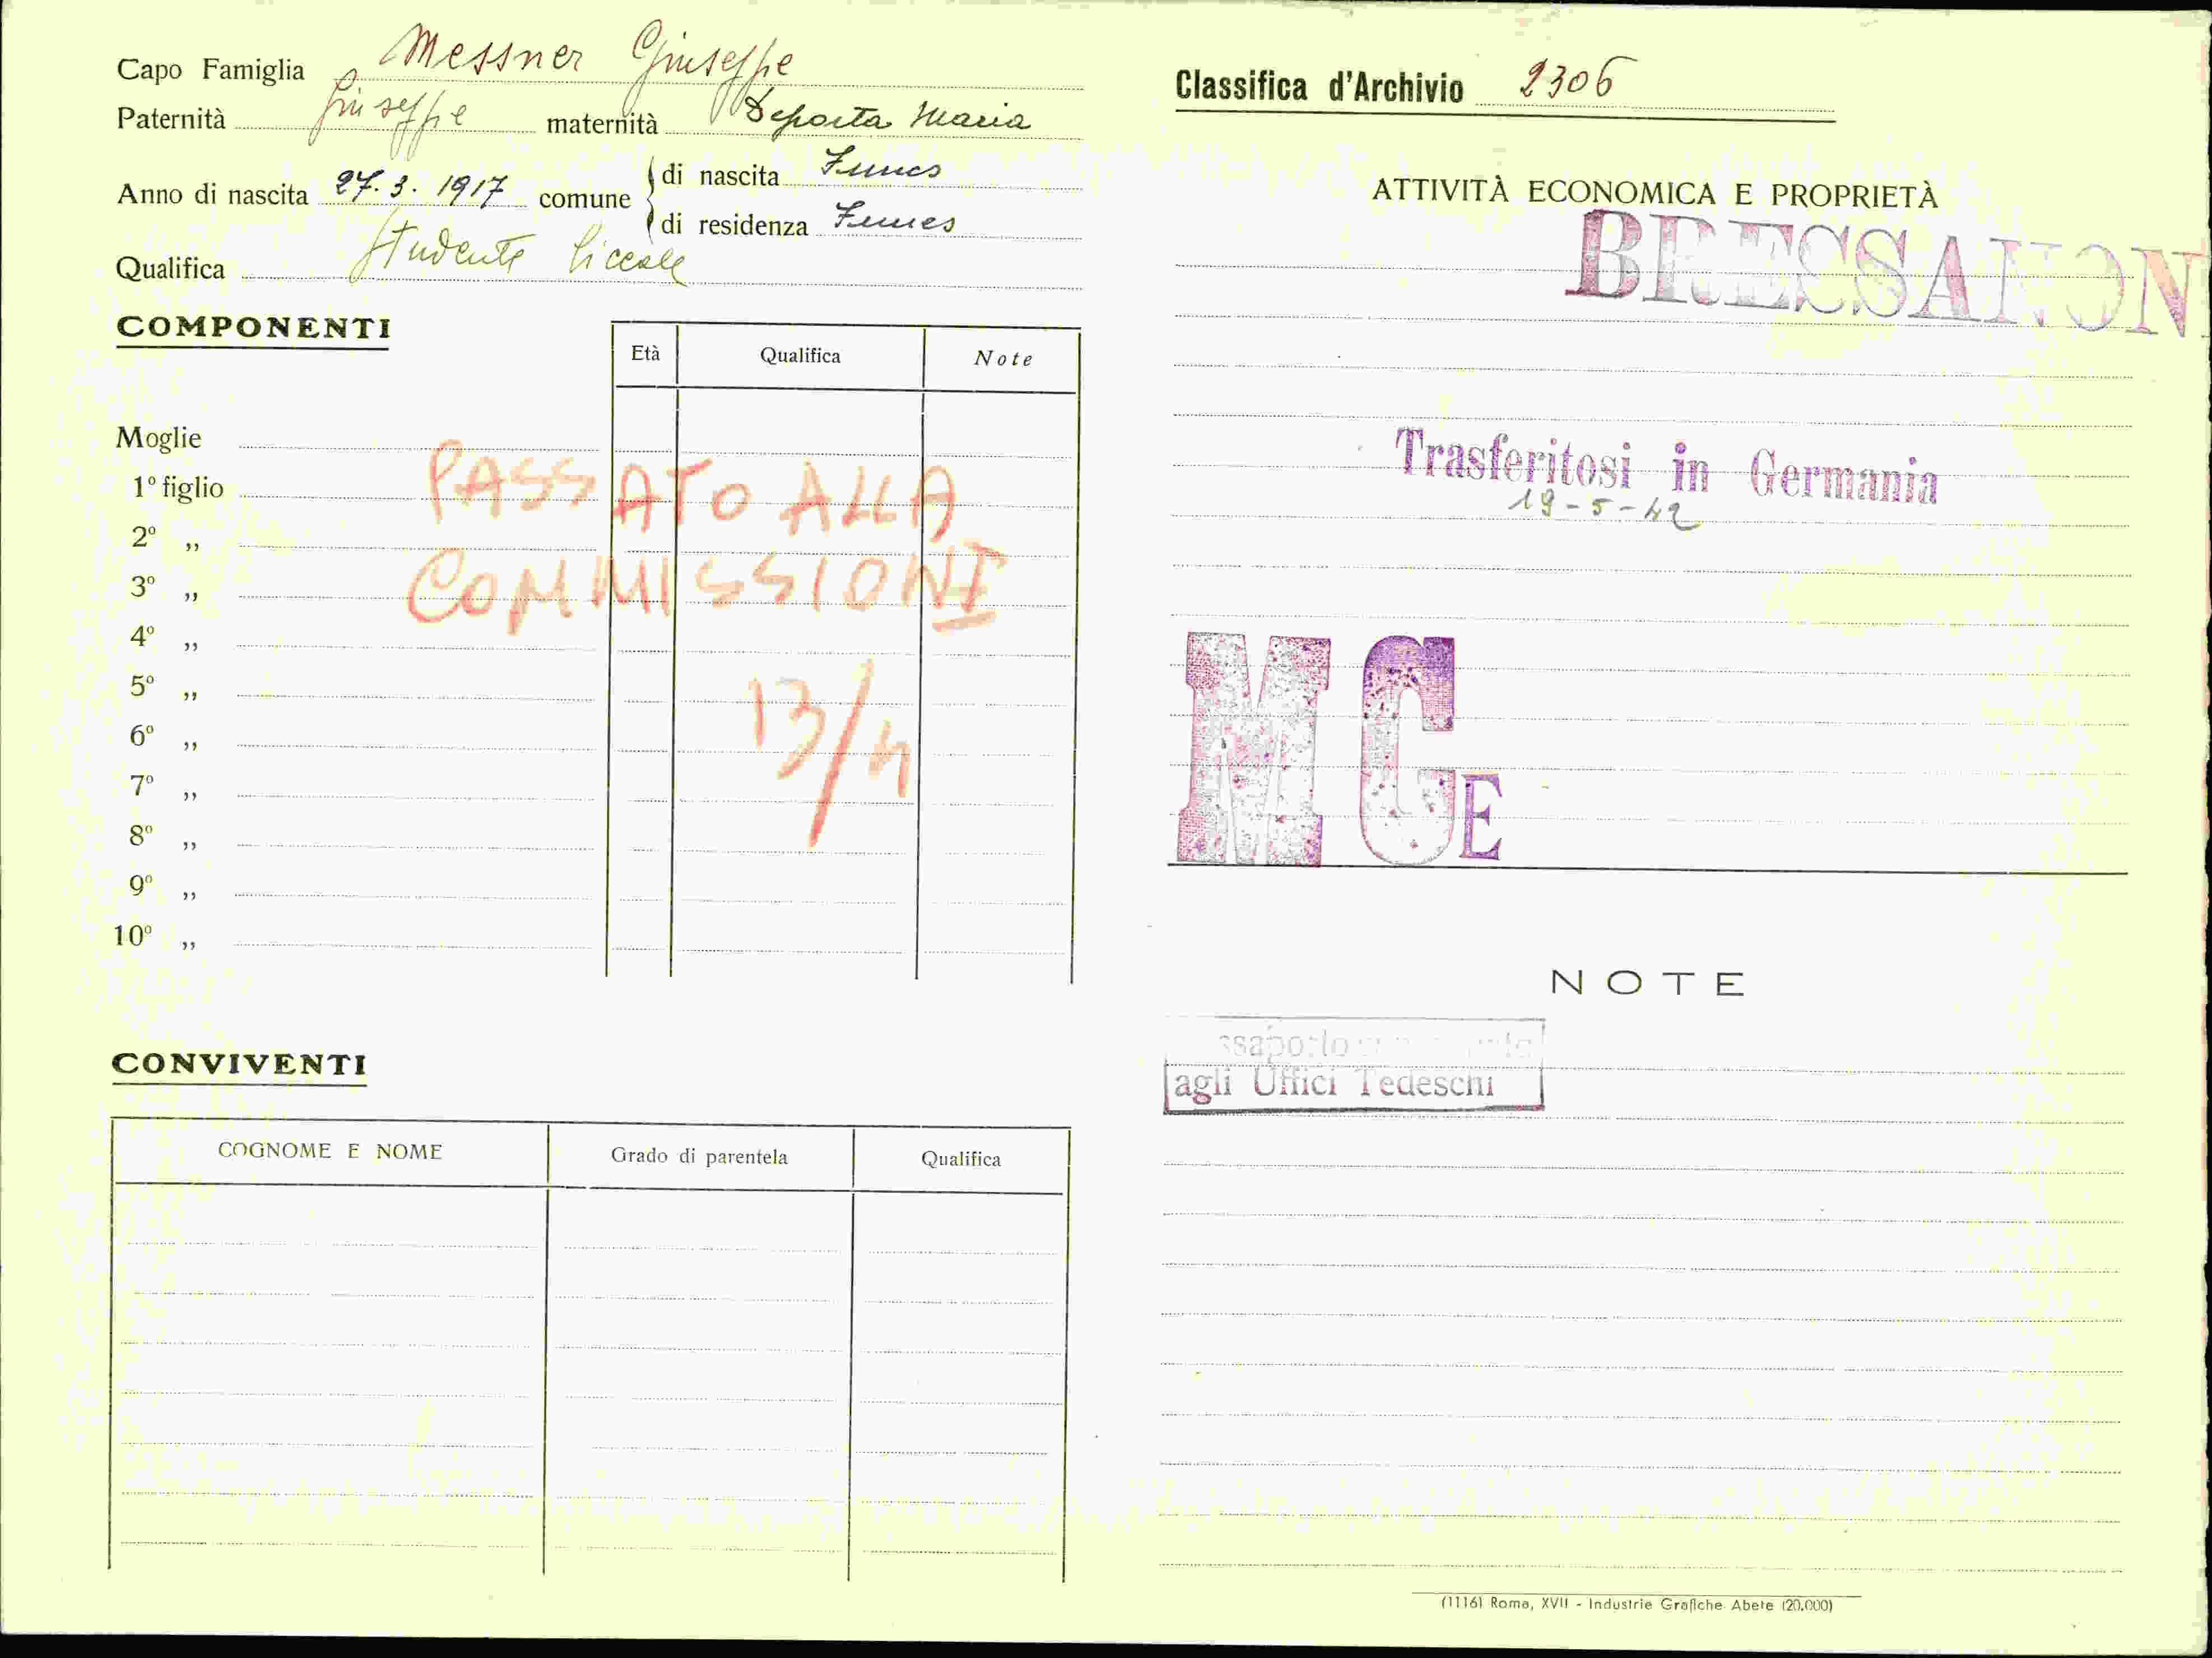 Capo Famiglia Messner Giuseppe
Paternità Giuseppe maternità Deporta Maria
Anno di nascita 27. 3. 1917 comune di nascita Funes
di residenza Funes
Qualifica Studente Liceale
COMPONENTI
Età Qualifica Note
Moglie
1º figlio
2º ,,
3º ,,
4º ,,
5º ,,
6º ,,
7º ,,
8º ,,
9º ,,
10º ,,
PASSATO ALLA
COMMISSIONE
13/
CONVIVENTI
COGNOME E NOME Grado di parentela Qualifica
Classifica d'Archivio 2306
ATTIVITÀ ECONOMICA E PROPRIETÀ
BRESSANON
Trasferitosi in Germania
19-5-42
MCE
NOTE
agli Uffici Tedeschi
(1116) Roma, XVII - Industrie Grafiche Abete (20.000)